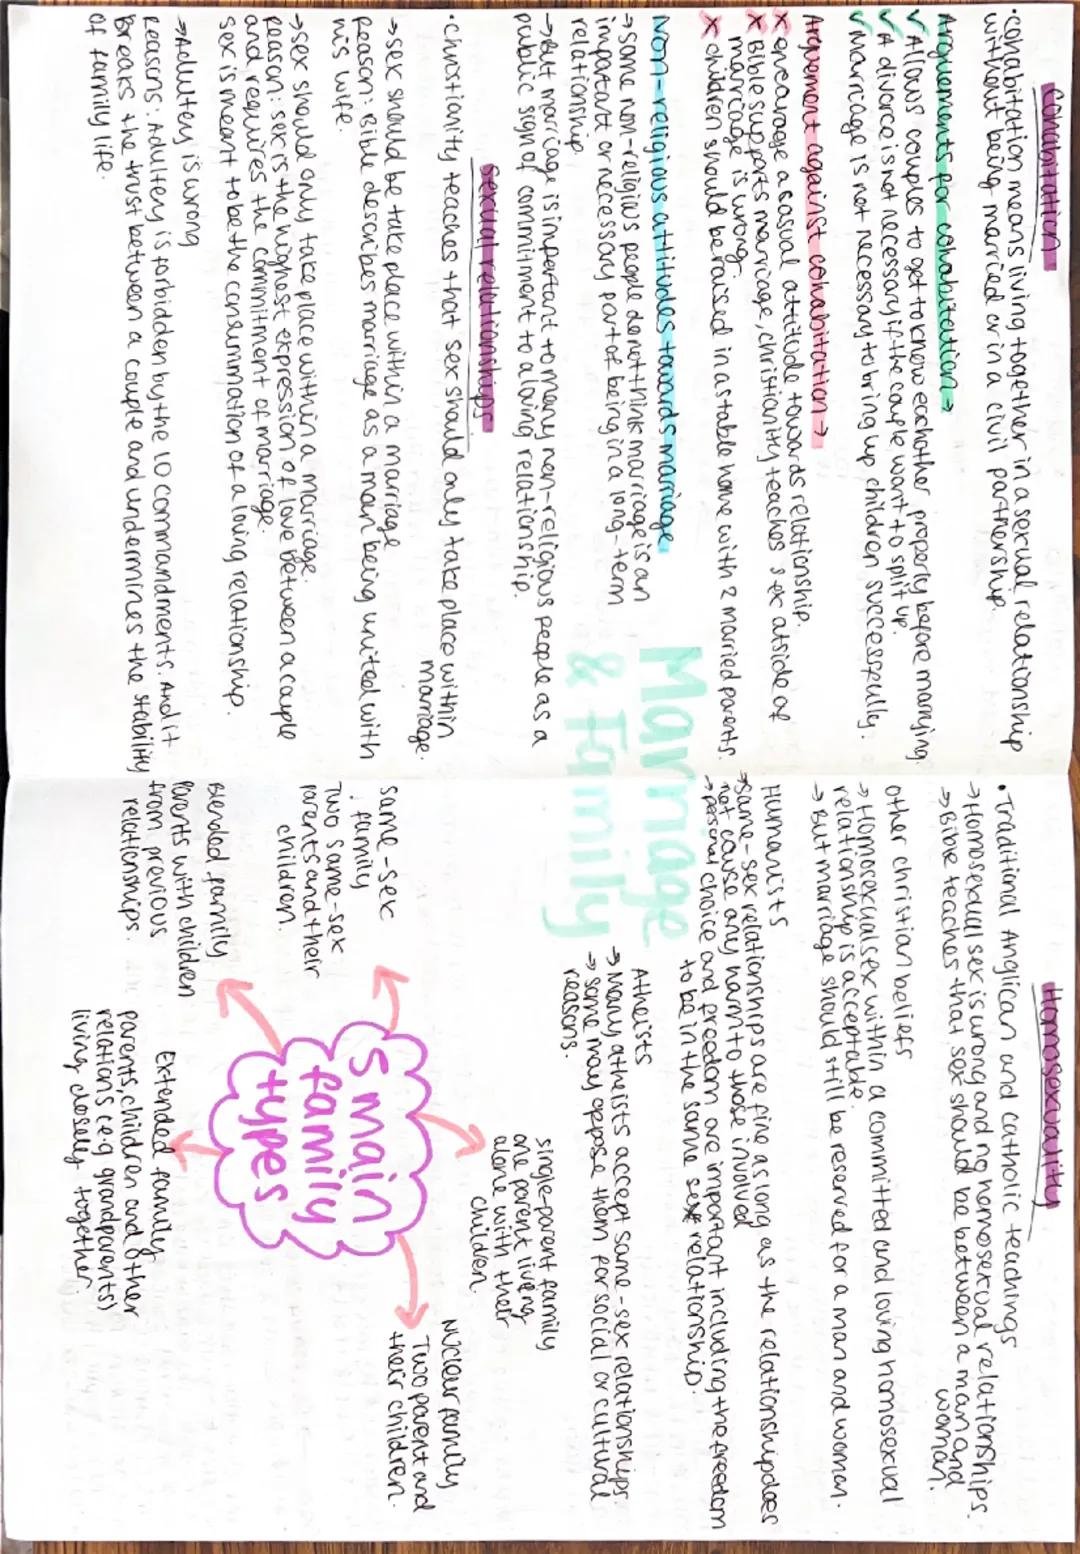 Cohabitation
• Cohabitation means living together in a sexual relationship
without being married or in a civil partnership.
Arguements for cohabitation →
✓ Allows couples to get to know eachother properly before marrying.
✓ A divorce is not necessary if the couple want to split up.
✓ Marriage is not necessary to bring up children successfully.
Arguement against cohabitation →
✗ encourage a casual attitude towards relationship.
✗ Bible supports marriage, christianity teaches sex outside of
marriage is wrong.
✗ children should be raised in a stable home with 2 married parents.
Non-religious attitudes towards marriage
→ some non-religius people do not think marriage is an
important or necessary part of being in a long-term
relationship.
→ But marriage is important to many non-religious people as a
public sign of commitment to a loving relationship.
Sexual relationships
• Christianity teaches that sex should only take place within
marriage.
→ sex should be take place within a marriage
Reason: Bible describes marriage as a man being united with
his wife.
→ sex should only take place within a marriage.
Reason: sex is the highest expression of love between a couple
and requires the commitment of marriage.
sex is meant to be the consumation of a loving relationship.
→ Adultery is wrong
Reasons: Adultery is forbidden by the 10 commandments. And it
breaks the trust between a couple and undermines the stability
of family life.
Marriage
& Family
Homosexuality
• Traditional Anglican and catholic teachings
→ Homosexual sex is wrong and no homosexual relationships.
→ Bible teaches that sex should be between a man and
woman.
other christian beliefs
→ Homosexual sex within a committed and loving homosexual
relationship is acceptable.
→ But marriage should still be reserved for a man and woman.
Humanists
→ Same-sex relationships are fine as long as the relationship does
not cause any harm to those involved
→ personal choice and freedom are important including the freedom
to be in the same sex relationship.
Atheists
→ Many atheists accept same-sex relationships.
→ some may oppose them for social or cultural
reasons.
5 main
family
types
same-sex
family
Two same-sex
parents and their
children.
single-parent family
one parent living
alone with their
children.
Nuclear family
Two parent and
their children.
Blended family
Parents with children
from previous
relationships.
Extended family
parents, children and other
relations (e.g grandparents)
living closely together.